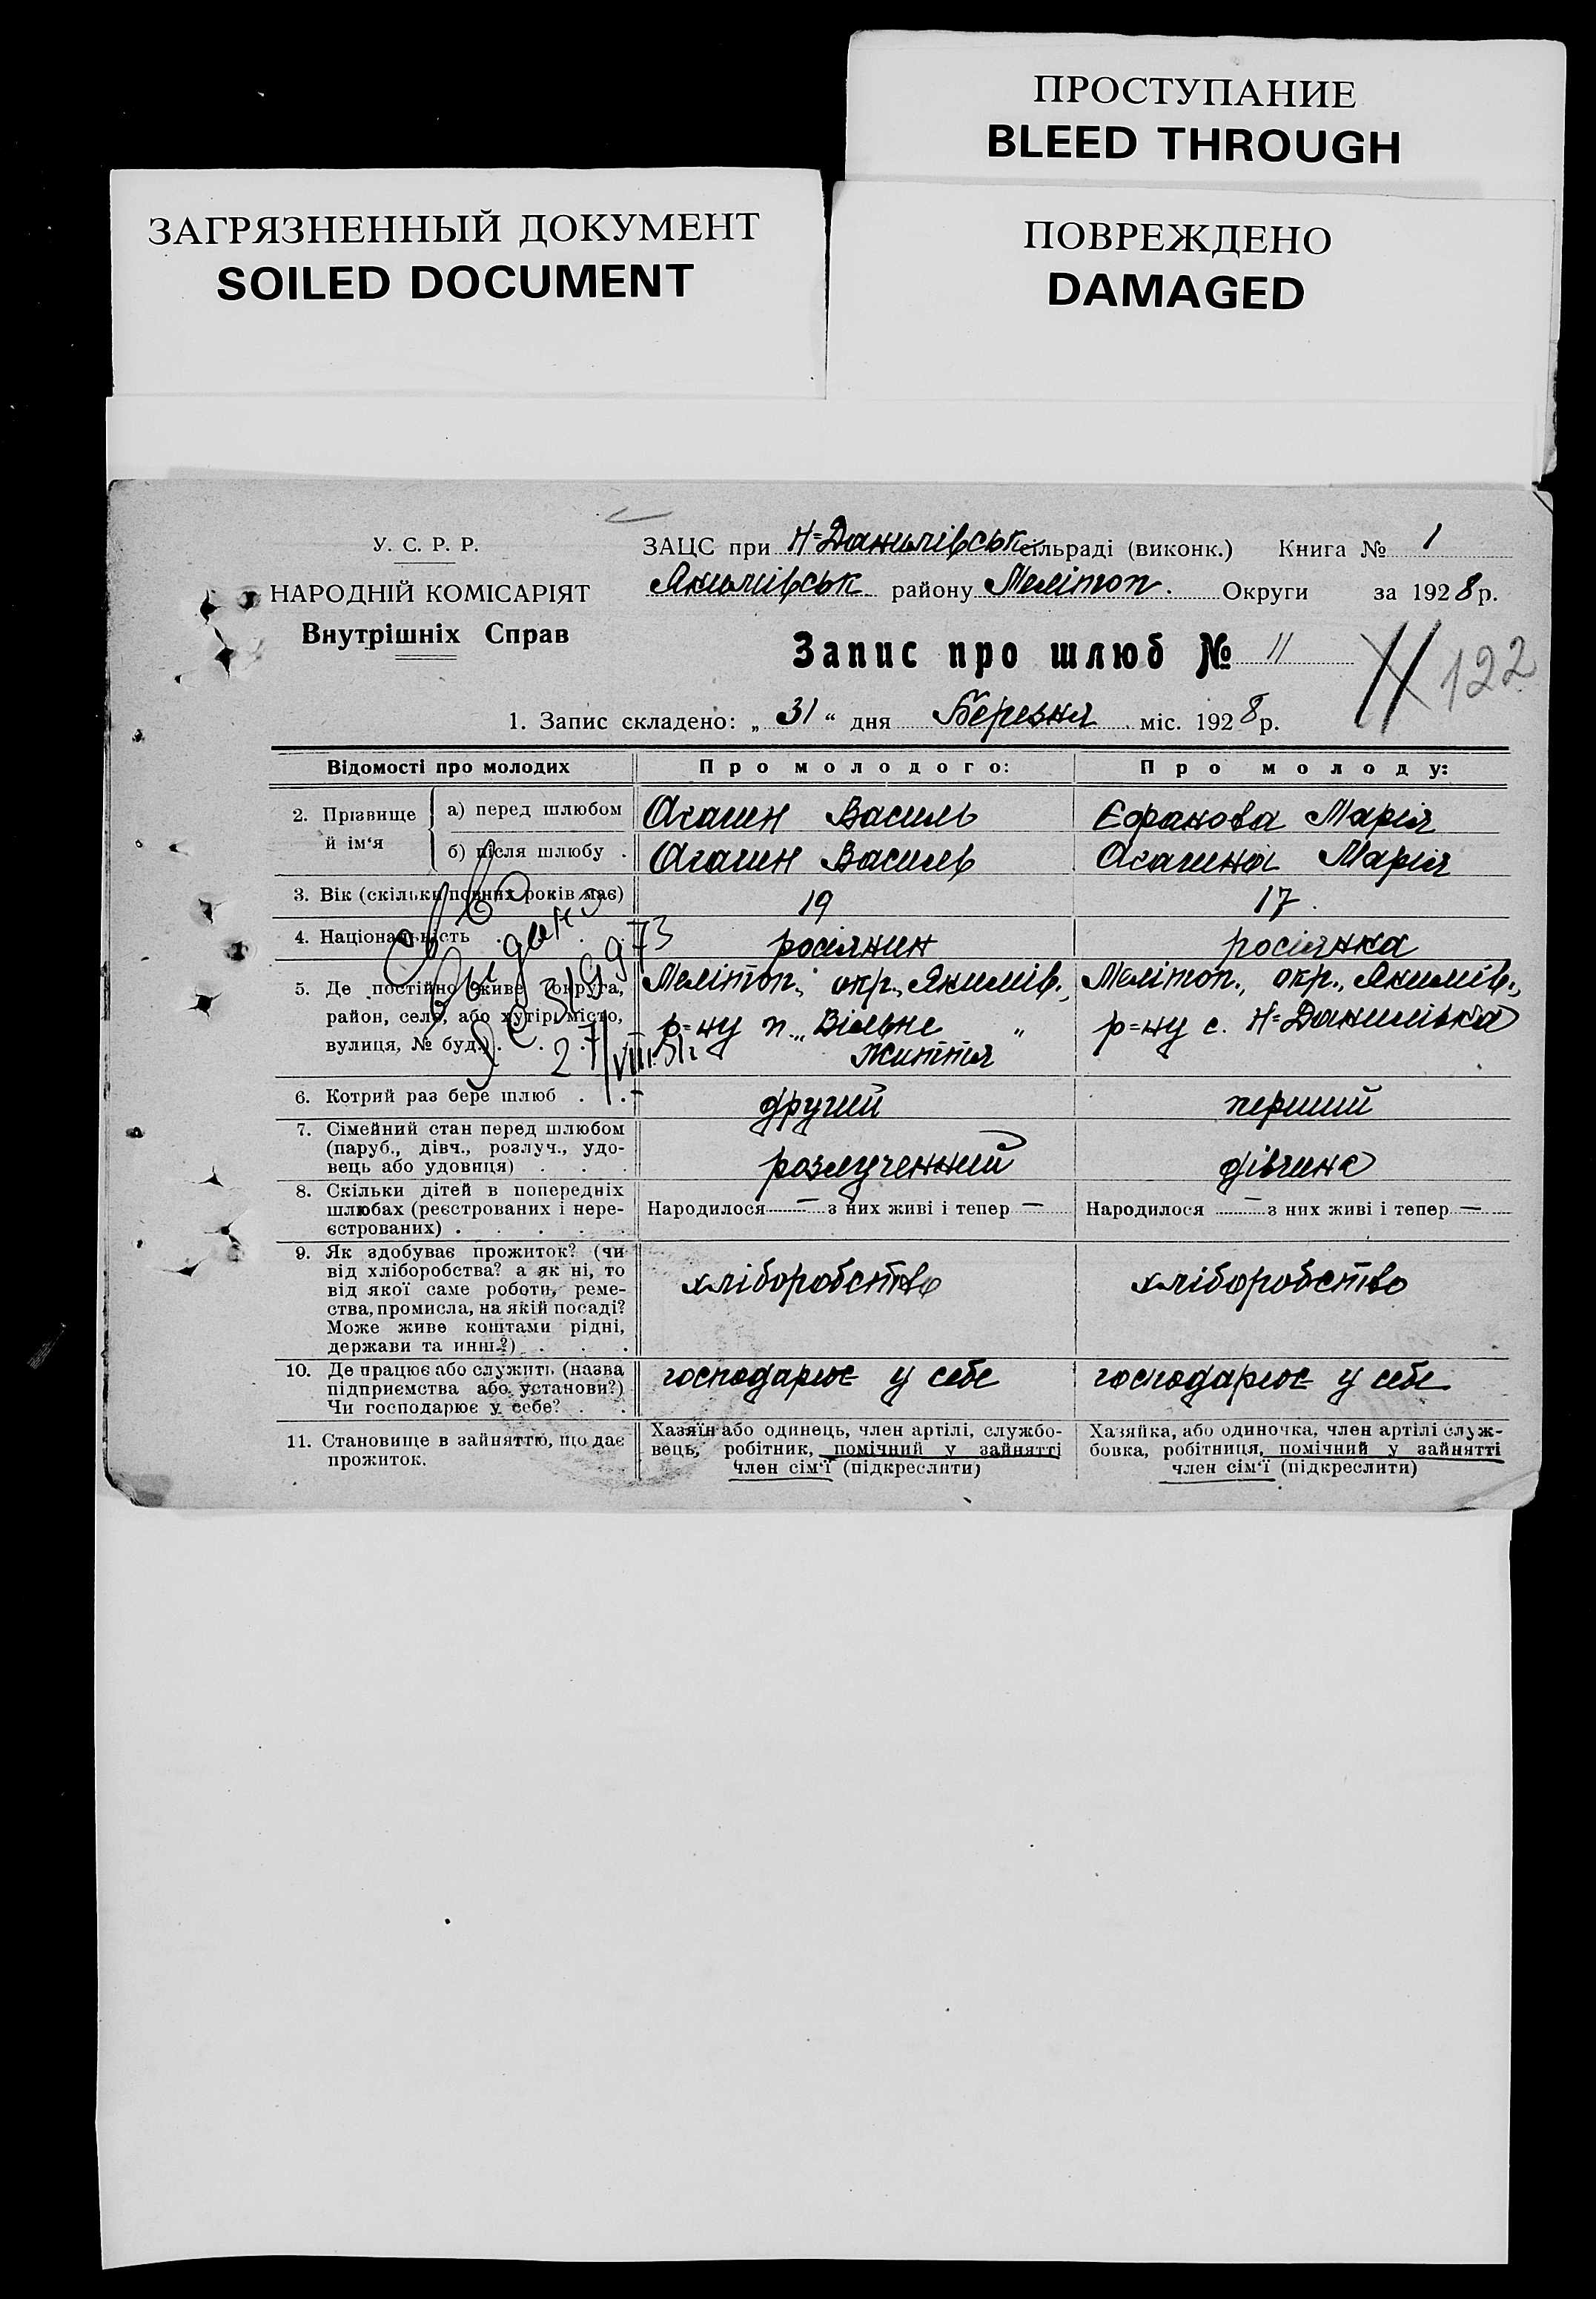 ПРОСТУПАНИЕ
BLEED THROUGH
ЗАГРЯЗНЕННЫЙ ДОКУМЕНТ
SOILED DOCUMENT
ПОВРЕЖДЕНО
DAMAGED
У. С. Р. Р.
НАРОДНІЙ КОМІСАРІЯТ
Внутрішніх Справ
ЗАЦС при Н=Данилівськ сільраді (виконк.) Книга № 1
Якимівськ району Мелітоп. Округи за 1928 р.
Запис про шлюб № 11
11 122
1. Запис складено: „ 31 “ дня Березня міс. 1928 р.
Відомості про молодих Про молодого: Про молоду:
2. Прізвище й ім‘я а) перед шлюбом Агагин Василь Єфанова Марія
б) після шлюбу . Агагин Василь Агагина Марія
3. Вік (скільки повних років має) 19 17.
4. Національність росіянин росіянка
5. Де постійно живе (округа, Мелітоп., окр., Якимів., Мелітоп., окр., Якимів.,
район, село, або хутір, місто, р=ну п. „Вільне р=ну с. Н=Данилівка
вулиця, № буд.) . . . Життя“
27/VIII
6. Котрий раз бере шлюб . . другий перший
7. Сімейний стан перед шлюбом
(паруб., дівч., розлуч., удо-
вець або удовиця) . . . розлученний дівчина
8. Скільки дітей в попередніх
шлюбах (реєстрованих і нере- Народилося — з них живі і тепер — Народилося — з них живі і тепер —
єстрованих) . . . . .
9. Як здобуває прожиток? (чи
від хліборобства? а як ні, то хліборобство хліборобство
від якої саме роботи, реме-
ства, промисла, на якій посаді?
Може живе коштами рідні,
держави та инш.?) . . .
10. Де працює або служить (назва господарює у себе господарює у себе
підприємства або установи?)
Чи господарює у себе? . .
11. Становище в зайняттю, що дає
прожиток.
Хазяїн або одинець, член артілі, службо-
вець, робітник, помічний у зайнятті
член сім‘ї (підкреслити)
Хазяйка, або одиночка, член артілі служ-
бовка, робітниця, помічний у зайнятті
член сім‘ї (підкреслити)